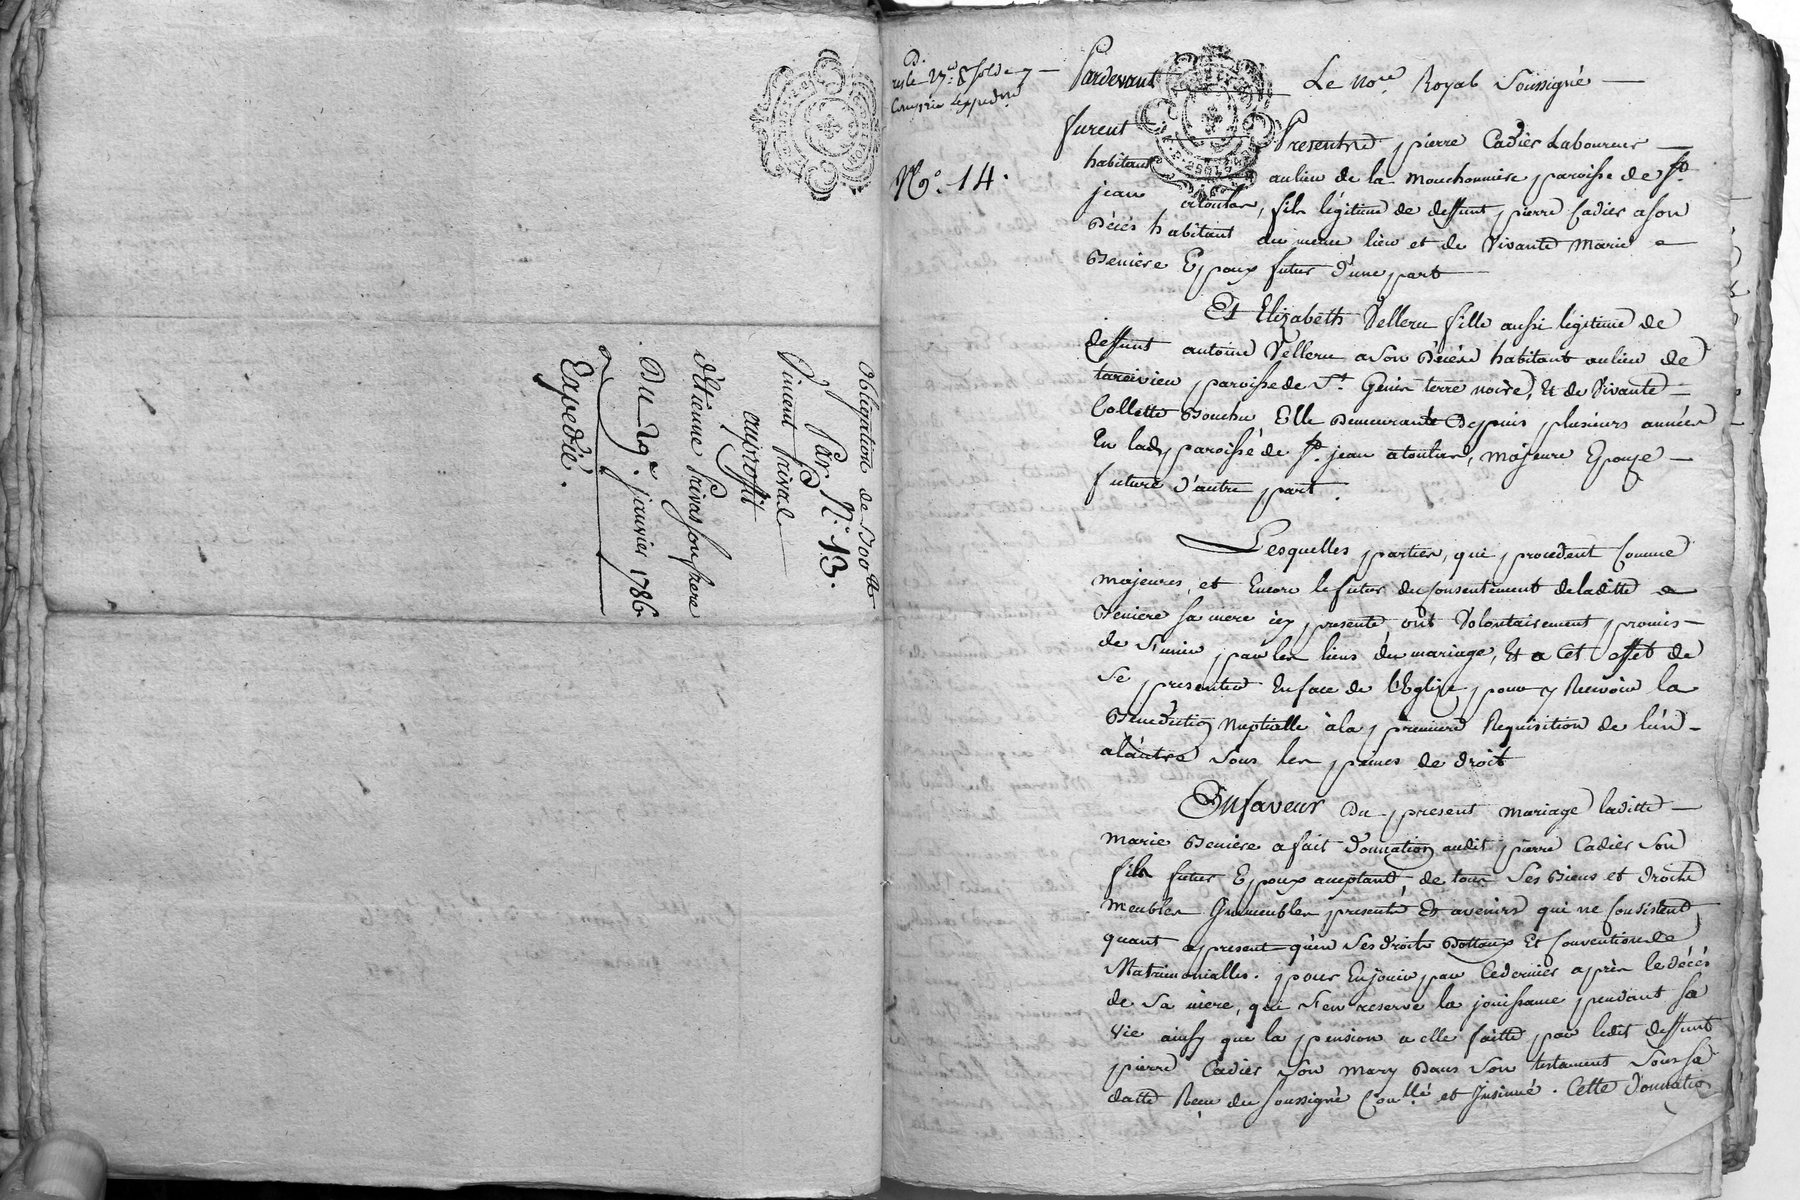 Obligation de 300ᵗᵗ
Par N.° 13.
Vincent Privat
au proffit
d'Etienne Privas son frere
Du 29.ᵉ janvier 1786
Expedié.
N.° 14.
Pardevant Le No.ʳᵉ Royal Soussigné
furent Presents pierre Cadier Laboureur
habitant au lieu de la Mouchonniere paroisse de Sᵗ
jean atoulas, fils légitime de deffunt pierre Cadier a son
Décés habitant du meme lieu et de Vivante Marie
Deniere Epoux futur d'une part
Et Elizabeth Velleru fille aussi légitime de
deffunt antoine Velleru a son Décès habitant au lieu de
paroisse de Sᵗ Genis terre noire, Et de Vivante
Collette Bouchu Elle Demeurante Depuis plusieurs années
En lad. paroisse de Sᵗ jean atoulas, majeure Epouze
future d'autre part.
Lesquelles parties, qui procedent Comme
majeures, et Encore le futur du Consentement de laditte
Deniere sa mere icy presente, ont Volontairement promis
de S'unir par les liens du mariage, Et a Cet Effet de
Se presenter En face de l'Eglize pour y Recevoir la
Benediction Nuptialle à la premiere Requisition de l'un
a l'autre Sous les peines de droit
En faveur Du present mariage laditte
Marie Deniere a fait donnation audit pierre Cadier Son
fils futur Epoux acceptant, de tous Ses Biens et droits
Meubles Immeubles presents Et avenirs qui ne Consistent
quant apresent qu'en Ses droits Dottaux Et Conventions
Matrimonialles. pour En jouir par Ce dernier après le décés
de Sa mere, qui S'en reserve la jouissance pendant Sa
Vie ainsy que la pension a elle faitte par ledit deffunt
pierre Cadier Son mary Dans Son testament Sous Sa
datte Reçu du Soussigné Con.ˡˡé et Insinué. Cette donnation